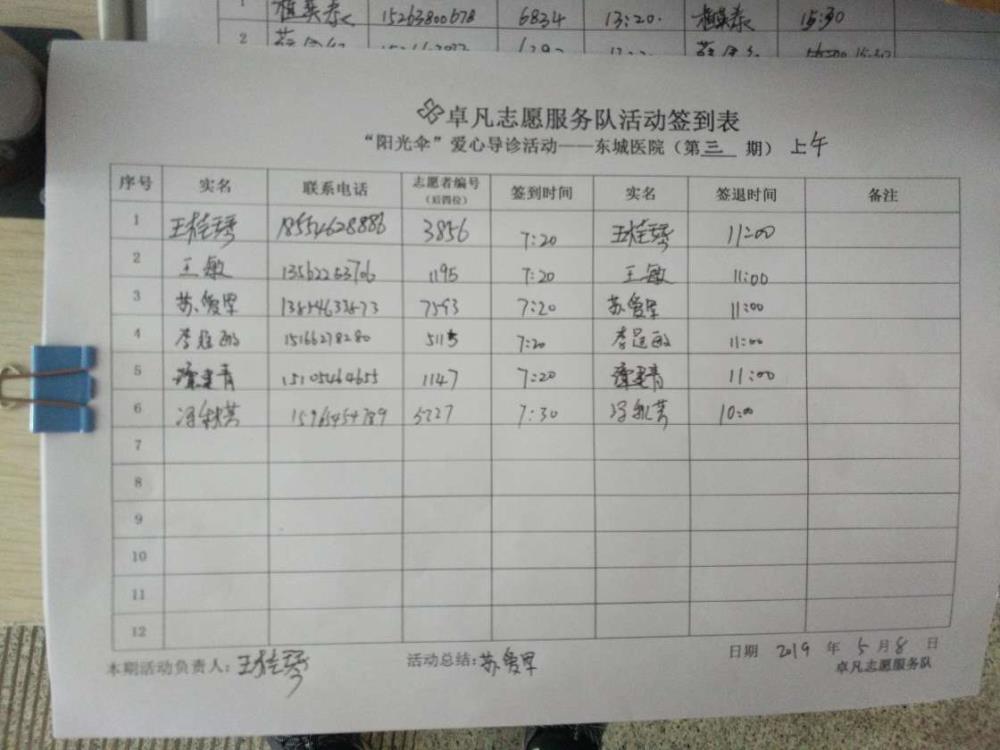 1 植英泰 15263800678 6834 13:20. 植英泰 15:30
2
卓凡志愿服务队活动签到表
“阳光伞”爱心导诊活动——东城医院（第三期）上午
序号 实名 联系电话 志愿者编号（后四位） 签到时间 实名 签退时间 备注
1 王桂琴 18554628886 3856 7:20 王桂琴 11:00
2 王敏 13562263706 1195 7:20 王敏 11:00
3 苏爱军 7593 7:20 苏爱军 11:00
4 李延敏 15166278280 5115 7:20 李延敏 11:00
5 建青 15105464655 1147 7:20 建青 11:00
6 冯秋芳 15965454789 5227 7:30 冯秋芳 10:00
7
8
9
10
11
12
本期活动负责人：王桂琴 活动总结：苏爱军 日期 2019 年 5 月 8 日
卓凡志愿服务队